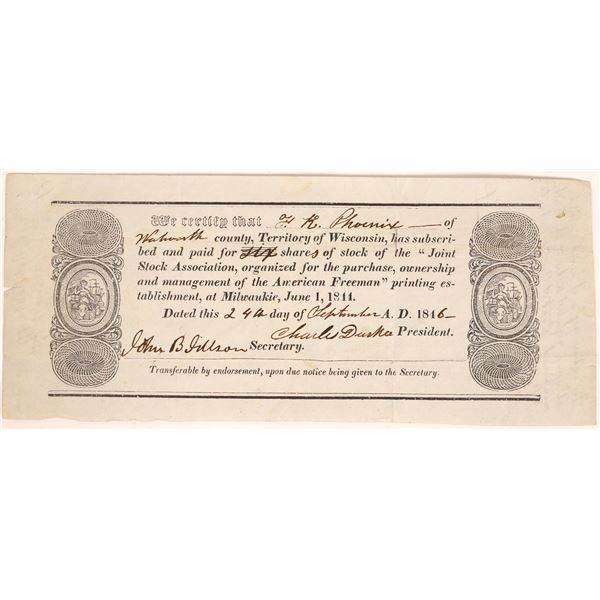 We certify that F. K. Phoenix — of
Walworth county, Territory of Wisconsin, has subscri-
bed and paid for shares of stock of the "Joint
Stock Association, organized for the purchase, ownership
and management of the American Freeman" printing es-
tablishment, at Milwaukie, June 1, 1844.
Dated this 24th day of September A. D. 1846
Charles Durkee President.
John B Jillson Secretary.
Transferable by endorsement, upon due notice being given to the Secretary.